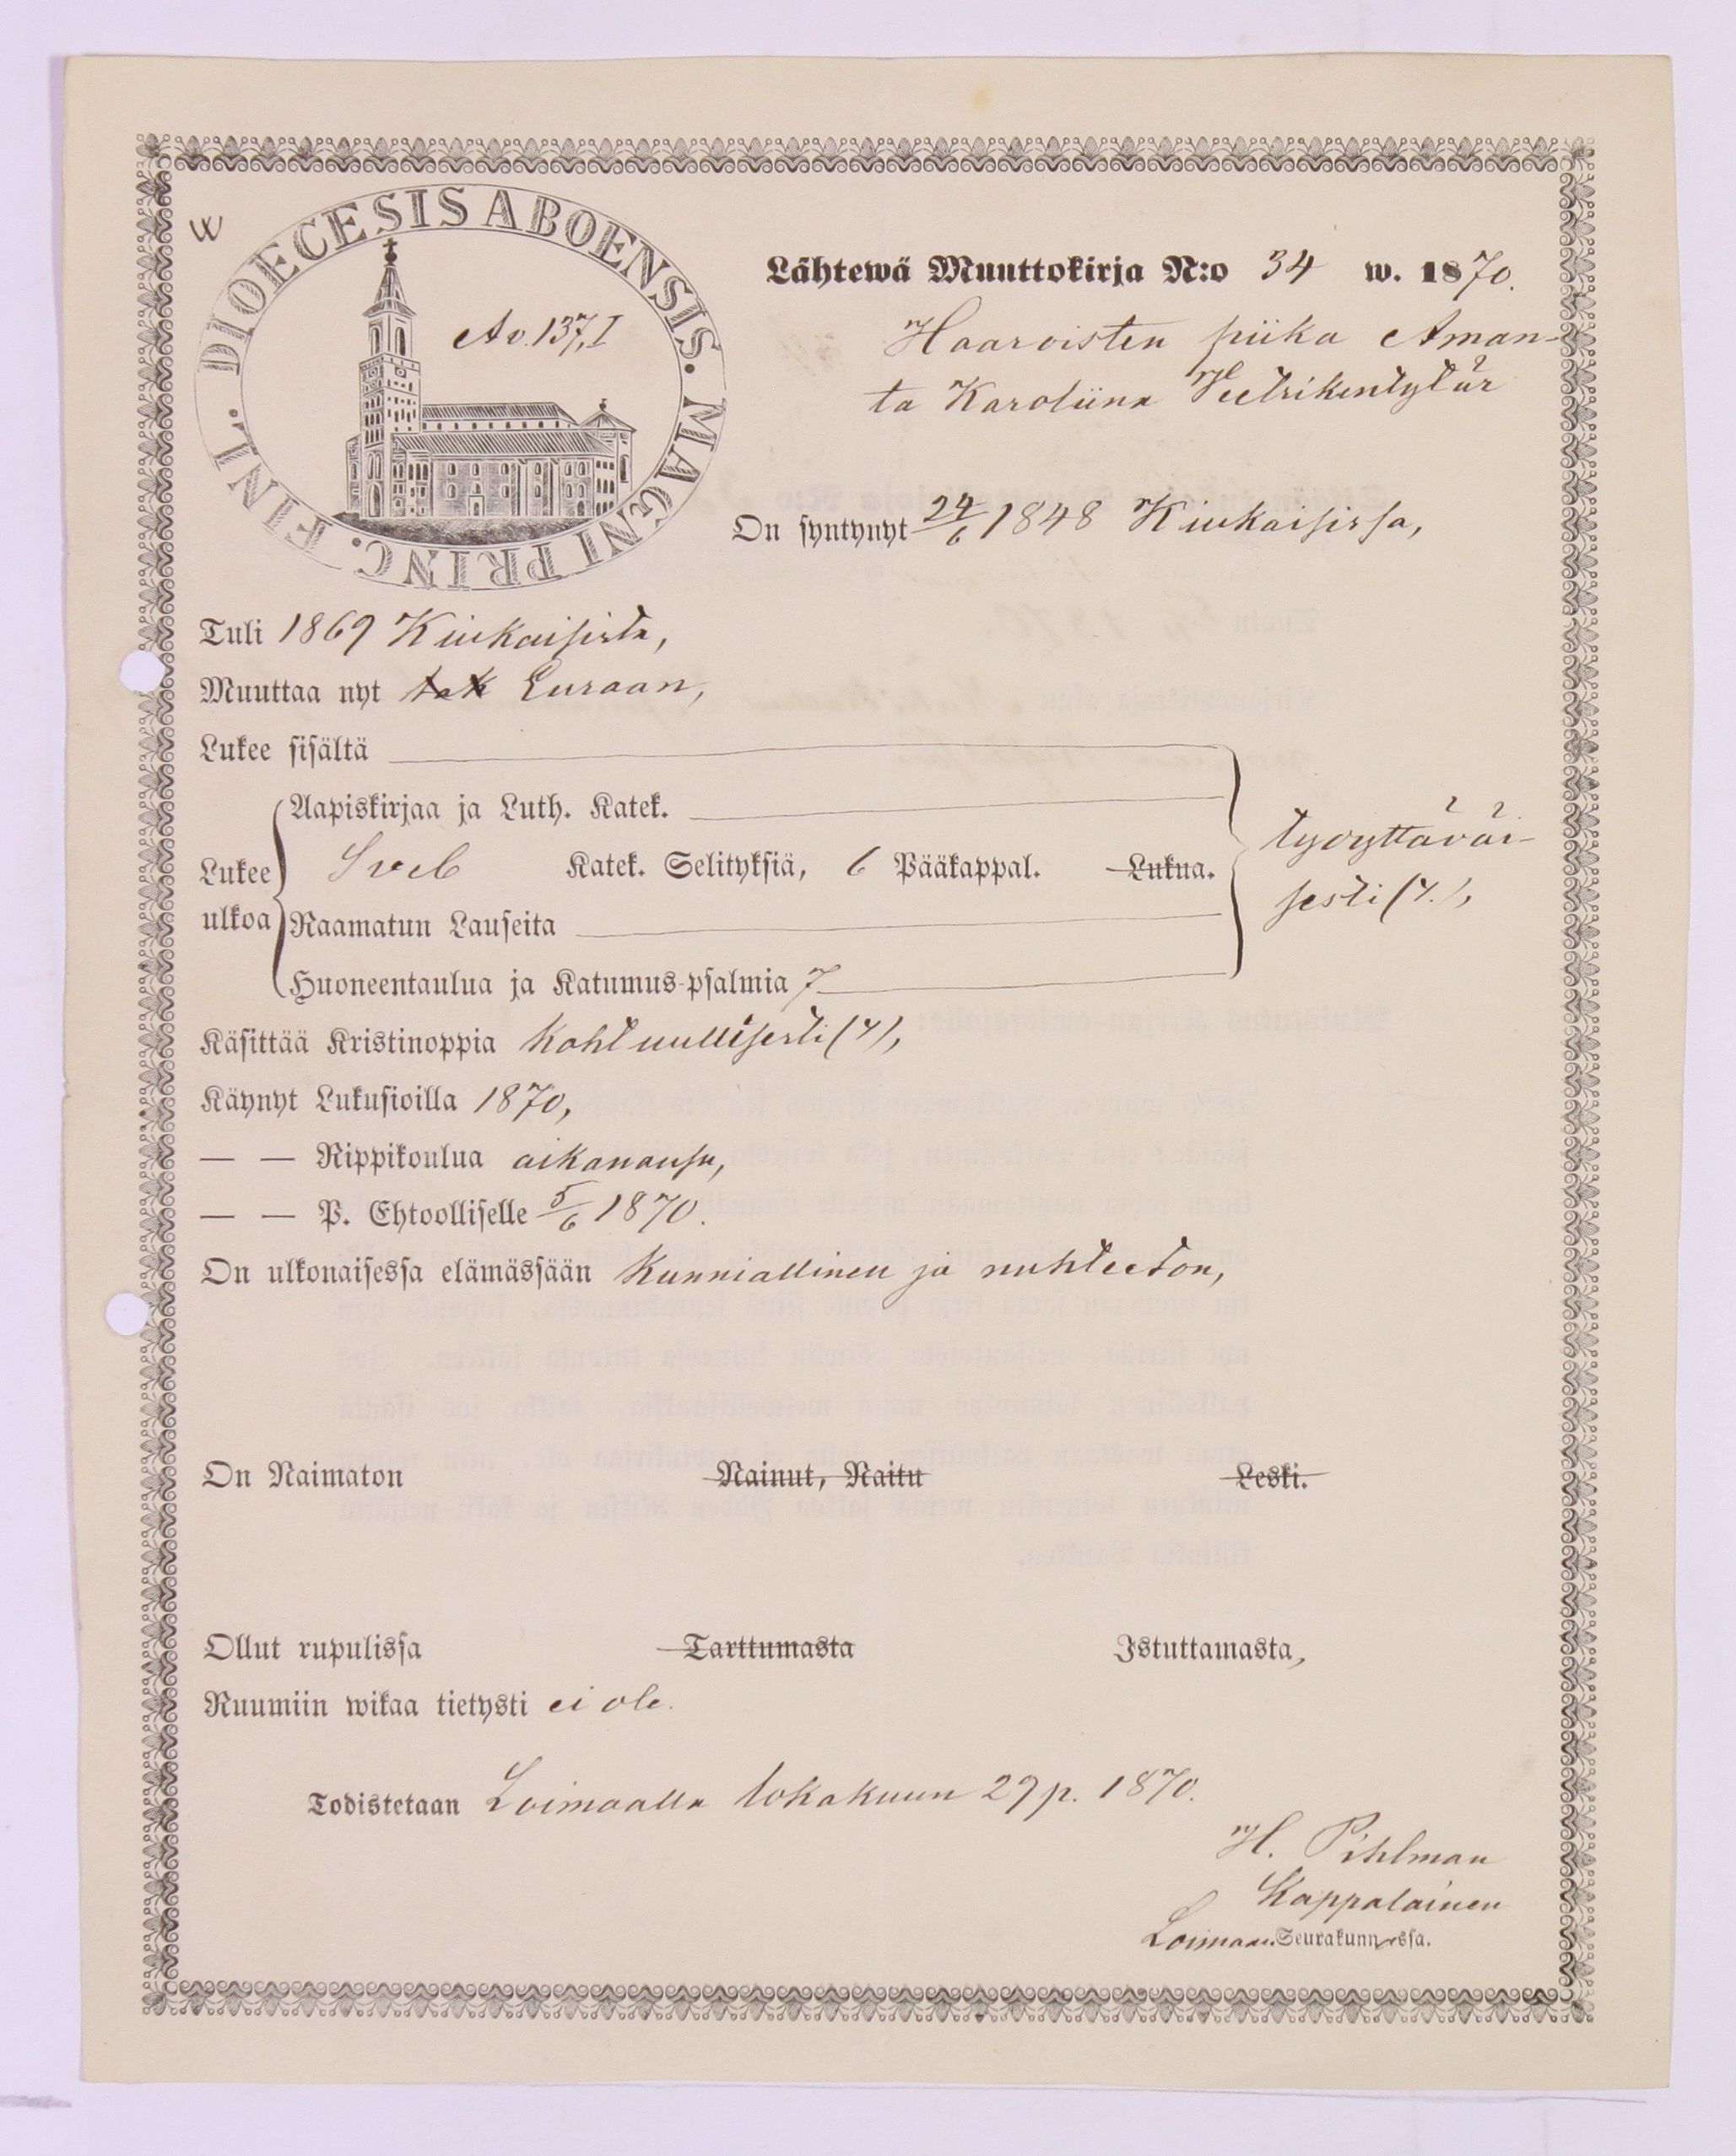 W
DIOECESIS ABOENSIS. MAGNI PRINC. FINL.
Av. 137, I
Lähtewä Muuttokirja N:o 34 w. 1870.
Haaroisten piika Aman-
ta Karoliina Heetrikintytär
On syntynyt 24/6 1848 Kiukaisissa,
Tuli 1869 Kiukaisista,
Muuttaa nyt tak Euraan,
Lukee sisältä
Aapiskirjaa ja Luth. Katek.
Lukee ulkoa
Sveb Katek. Selityksiä, 6 Pääkappal. Lukua.
tyydyttäväi-
sesti (4.),
Raamatun Lauseita
Huoneentaulua ja Katumus-psalmia 7
Käsittää Kristinoppia kohtuullisesti (4),
Käynyt Lukusioilla 1870,
— — Rippikoulua aikanansa,
— — P. Ehtoolliselle 5/6 1870.
On ulkonaisessa elämässään kunniallinen ja nuhteeton,
On Naimaton Nainut, Naitu Leski.
Ollut rupulissa Tarttumasta Istuttamasta,
Ruumiin wikaa tietysti ei ole.
Todistetaan Loimaalla lokakuun 29 p. 1870.
H. Pihlman
Kappalainen
Loimaan Seurakunnassa.